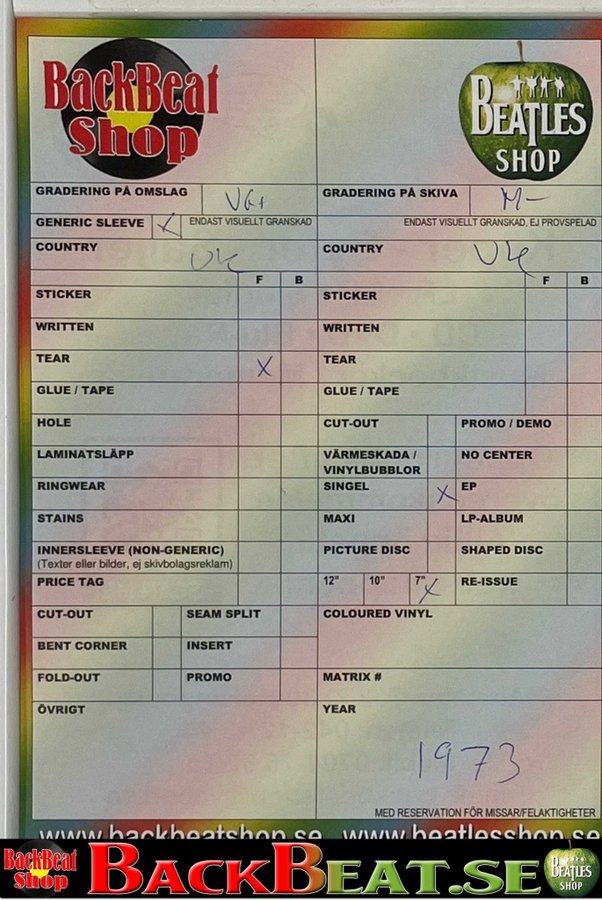 BackBeat
Shop
BEATLES
SHOP
GRADERING PÅ OMSLAG VG+
GRADERING PÅ SKIVA M-
GENERIC SLEEVE X ENDAST VISUELLT GRANSKAD
ENDAST VISUELLT GRANSKAD, EJ PROVSPELAD
COUNTRY UK
COUNTRY UK
F B
F B
STICKER
STICKER
WRITTEN
WRITTEN
TEAR X
TEAR
GLUE / TAPE
GLUE / TAPE
HOLE
CUT-OUT
PROMO / DEMO
LAMINATSLÄPP
VÄRMESKADA /
VINYLBUBBLOR
NO CENTER
RINGWEAR
SINGEL X
EP
STAINS
MAXI
LP-ALBUM
INNERSLEEVE (NON-GENERIC)
(Texter eller bilder, ej skivbolagsreklam)
PICTURE DISC
SHAPED DISC
PRICE TAG
12" 10" 7" X
RE-ISSUE
CUT-OUT
SEAM SPLIT
COLOURED VINYL
BENT CORNER
INSERT
FOLD-OUT
PROMO
MATRIX #
ÖVRIGT
YEAR
1973
MED RESERVATION FÖR MISSAR/FELAKTIGHETER
www.backbeatshop.se www.beatlesshop.se
BackBeat
Shop
BACKBEAT.SE
BEATLES
SHOP